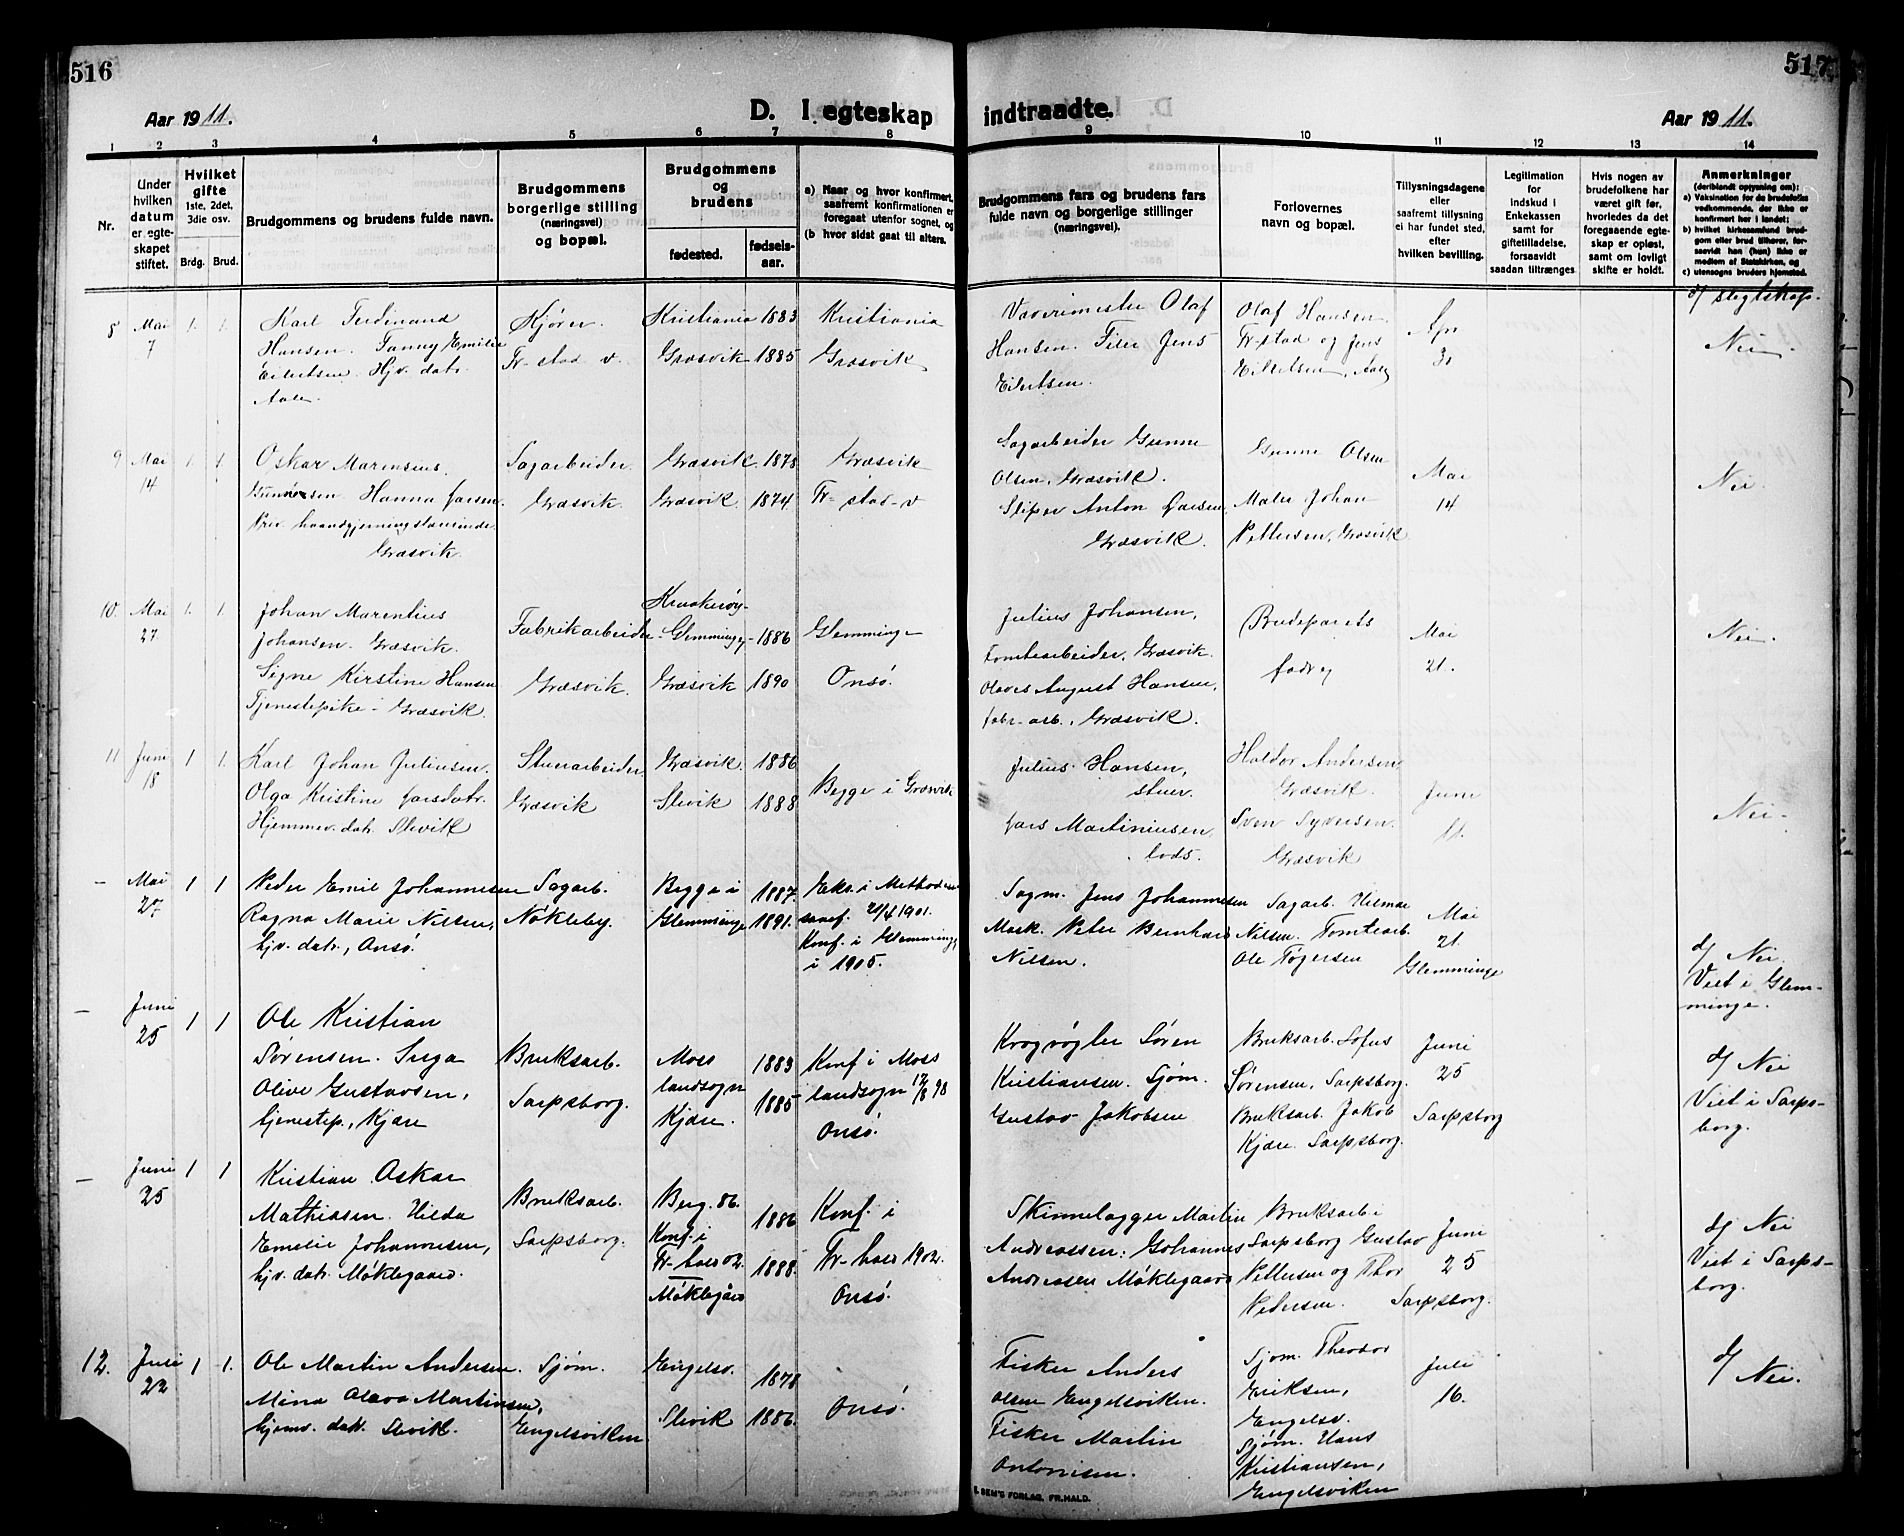 516
517
Aar 1911.
D. I egteskap indtraadte.
Aar 1911.
1 2 3 4 5 6 7 8 9 10 11 12 13 14
Nr.
Under hvilken datum er egteskapet stiftet.
Hvilket gifte 1ste, 2det, 3die osv.
Brdg. Brud.
Brudgommens og brudens fulde navn.
Brudgommens borgerlige stilling (næringsvei) og bopæl.
Brudgommens og brudens
fødested.
fødselsaar.
a) Naar og hvor konfirmert, saafremt konfirmationen er foregaat utenfor sognet, og
(b hvor sidst gaat til alters.
Brudgommens fars og brudens fars fulde navn og borgerlige stillinger (næringsvei).
Forlovernes navn og bopæl.
Tillysningsdagene eller saafremt tillysning ei har fundet sted, efter hvilken bevilling.
Legitimation for indskud i Enkekassen samt for giftetilladelse, forsaavidt saadan tiltrænges
Hvis nogen av brudefolkene har været gift før, hvorledes da det foregaaende egteskap er opløst, samt om lovligt skifte er holdt.
Anmerkninger (deriblandt oplysning om):
a) Vaksination for de brudefolks vedkommende, der ikke er konfirmert her i landet;
b) hvilket kirkesamfund brudgom eller brud tilhører, forsaavidt han (hun) ikke er medlem af Statskirken, og
c) utensogns bruders hjemsted.
d/ slegtskap.
8 Mai 7 1. 1.
Karl Ferdinand
Hansen. Fanny Emilie
Eilertsen. Hjv. datr.
Aale.
Kjører.
Fr-stad v.
Kristiania 1883
Græsvik 1885
Kristiania
Græsvik
Værimester Olaf
Hansen. Filer Jens
Eilertsen.
Olaf Hansen
Fr-stad og Jens
Eilertsen, Aale
Apr
30
Nei.
9 Mai 14 1. 1.
Oskar Marensius.
Gunnesen Hanna Larsen
Priv. haandgjerningslærerinde.
Græsvik.
Sagarbeider.
Græsvik.
Græsvik. 1878
Græsvik. 1874.
Græsvik
Fr-stad-v
Sagarbeider Gunne
Olsen, Græsvik.
Sliper Anton Larsen,
Græsvik.
Gunne Olsen
Maler Johan
Pettersen, Græsvik
Mai
14
Nei.
10. Mai 27 1. 1.
Johan Marentius
Johansen. Græsvik.
Signe Kirstine Hansen
Tjenestepike - Græsvik.
Fabrikarbeider
Græsvik.
Kraakerøy-
Glemminge, 1886
Græsvik 1890
Glemminge
Onsø.
Julius Johansen,
Tomtearbeider. Græsvik.
Olaves August Hansen,
fabr-arb., Græsvik.
Brudeparets
fædre
Mai
21.
Nei.
11 Juni 18 1 1.
Karl Johan Juliussen.
Olga Kristine Larsdatr.
Hjemmev. datr. Slevik
Stuerarbeider
Græsvik
Græsvik. 1886
Slevik 1888
Begge i Græsvik
Julius Hansen,
stuer.
Lars Martiniussen
lods.
Haldor Andersen
Græsvik.
Sven Syversen.
Græsvik
Juni
11.
Nei.
- Mai 27 1 1
Peder Emil Johannesen
Ragna Marie Nilsen,
hjv. datr., Onsø.
Sagarb.
Nøkleby.
Begge i 1887.
Glemminge 1891.
Eks. i Methodi-
samf. 21/4 1901.
Konf. i Glemminge
i 1905.
Sagm. Jens Johannesen
Mask. Peter Bernhard
Nilsen.
Sagarb. Hilmar
Nilsen. Tomtearb.
Ole Tøgersen
Mai
21.
Glemminge
d/ Nei.
Viet i Glem-
minge.
- Juni 25 1 1
Ole Kristian
Sørensen. Inga
Olive Gustavsen,
tjenestep., Kjære
Bruksarb.
Sarpsborg.
Moss 1883
landsogn
Kjære. 1885
Konf. i Moss
landsogn 12/8 98
Onsø.
Krogvøgler Søren
Kristiansen. Sjøm.
Gustav Jakobsen
Bruksarb. Sofus
Sørensen, Sarpsborg.
Bruksarb. Jakob
Kjære. Sarpsborg.
Juni
25
Sarpsborg
d/ Nei
Viet i Sarps-
borg.
- Juni 25 1 1
Kristian Oskar
Mathiasen. Hilda
Emelie Johannesen,
hjv. datr. Møklegaard.
Bruksarb.
Sarpsborg.
Berg. 86. 1886
Konf. i
Fr-hald 02.
Møklegård 1888.
Konf. i
Fr-hald 1902.
Onsø.
Skinnelægger Martin
Andreassen: Johannes
Andreasen Møklegaard
Bruksarb i
Sarpsborg Gustav
Pettersen og Thor
Pedersen.
Juni
25
Sarpsborg.
d/ Nei
Viet i Sarps-
borg.
12. Juli 22 1 1.
Ole Martin Andersen.
Mina Olava Martinsen,
hjemv. datr. Slevik.
Sjøm.
Engelsviken
Engelsv. 1878
Slevik 1886.
Onsø.
Fisker Anders
Olsen Engelsviken.
Fisker Martin
Antonisen.
Sjøm. Theodor
Eriksen,
Engelsv.
Sjøm. Hans
Kristiansen,
Engelsviken
Juli
16.
d/ Nei.
SEM'S FORLAG, FR.HALD.